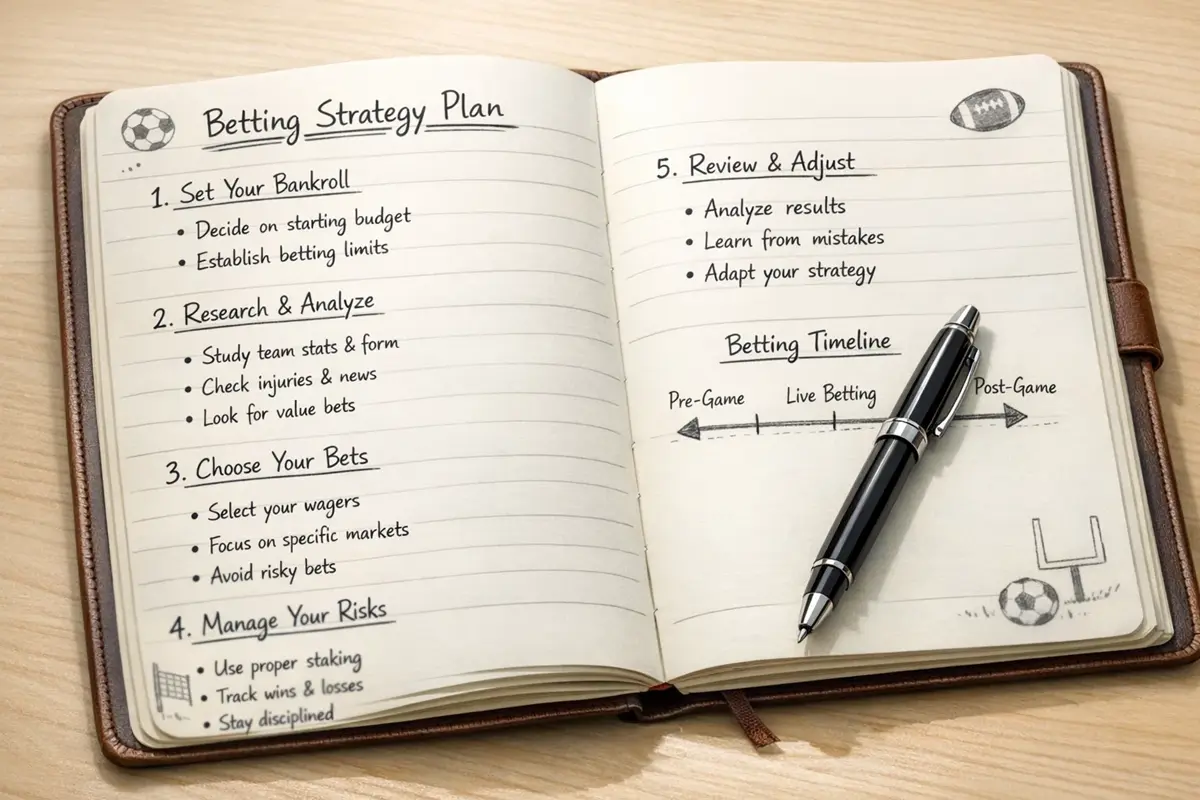 Betting Strategy Plan
1. Set Your Bankroll
• Decide on starting budget
• Establish betting limits
2. Research & Analyze
• Study team stats & form
• Check injuries & news
• Look for value bets
3. Choose Your Bets
• Select your wagers
• Focus on specific markets
• Avoid risky bets
4. Manage Your Risks
• Use proper staking
• Track wins & losses
• Stay disciplined
5. Review & Adjust
• Analyze results
• Learn from mistakes
• Adapt your strategy
Betting Timeline
Pre-Game Live Betting Post-Game